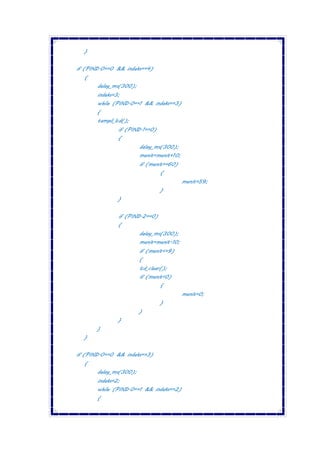 }
if (PIND.0==0 && indeks==4)
{
delay_ms(300);
indeks=3;
while (PIND.0==1 && indeks==3)
{
tampil_lcd();
if (PIND.1==0)
{
delay_ms(300);
menit=menit+10;
if (menit>=60)
{
menit=59;
}
}
if (PIND.2==0)
{
delay_ms(300);
menit=menit-10;
if (menit<=9)
{
lcd_clear();
if (menit<0)
{
menit=0;
}
}
}
}
}
if (PIND.0==0 && indeks==3)
{
delay_ms(300);
indeks=2;
while (PIND.0==1 && indeks==2)
{